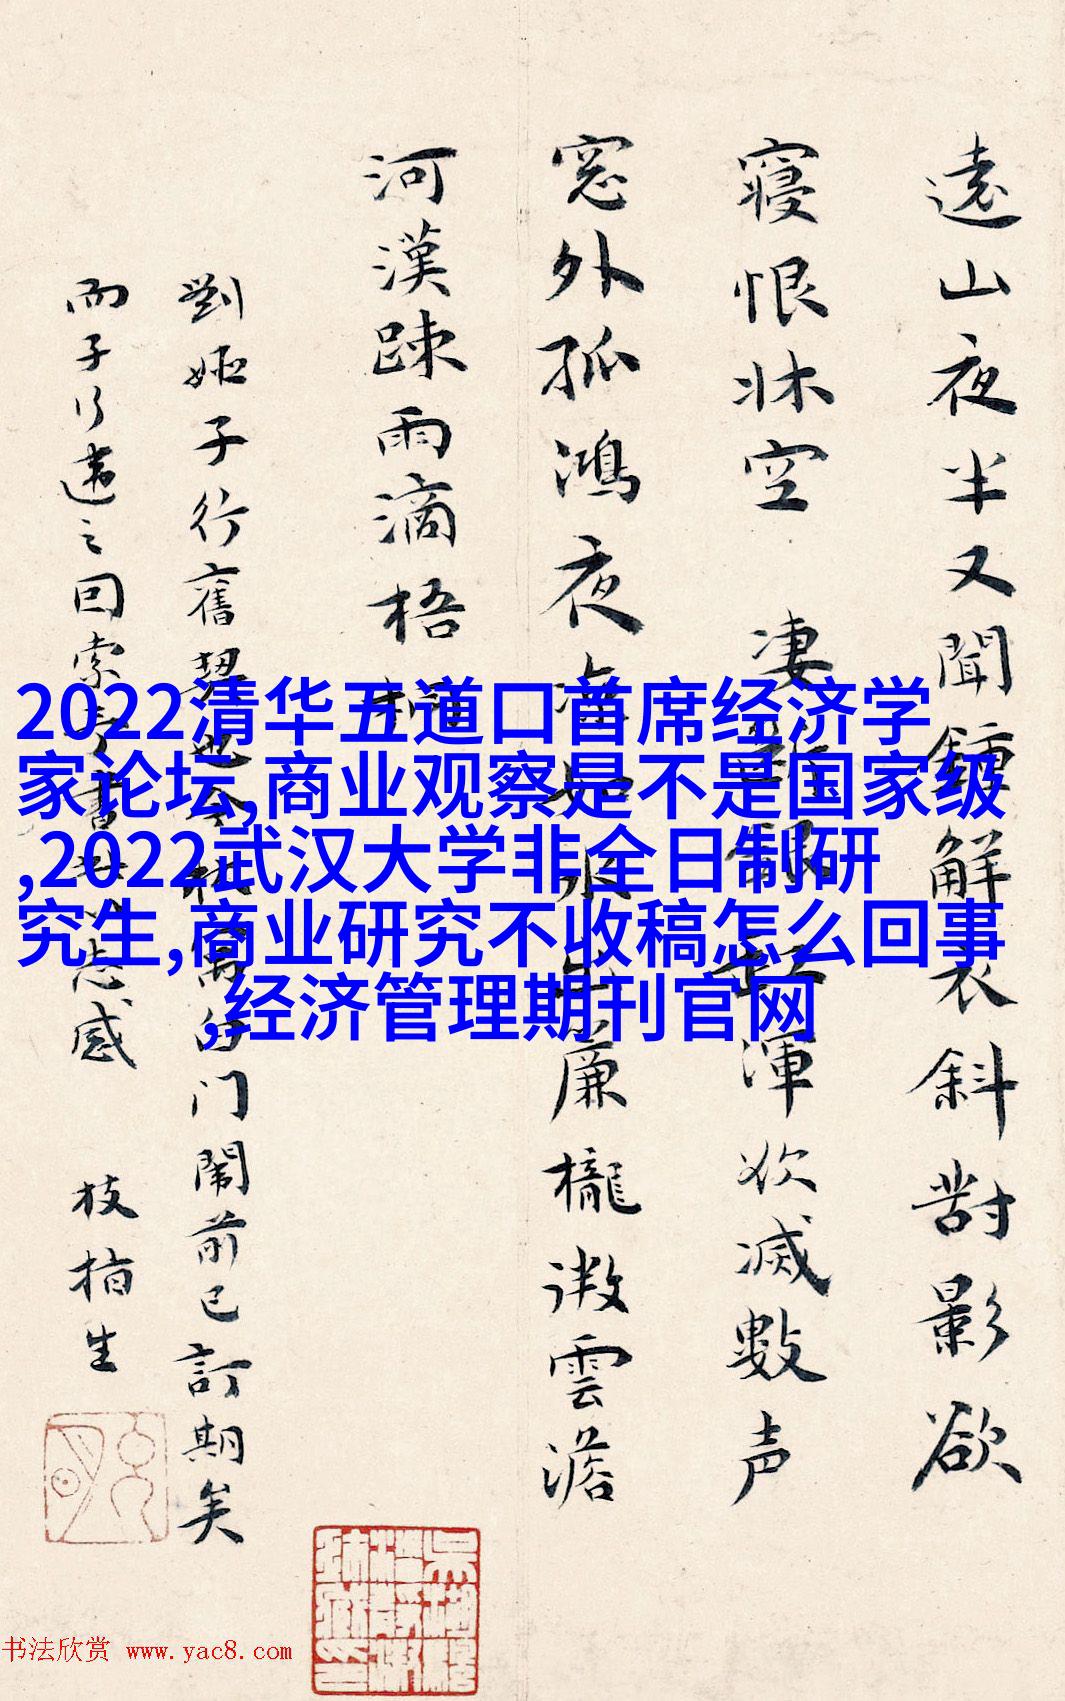 遠山夜半又聞鍾解衣斜對影欲
寢恨牀空 凄銀缸渾欲滅數声
窓外孤鴻夜廉櫳微雲澹
河漢踈雨滴梧桐
劉姬子行舊契也今白门鬧前已訂期矣
而子行遠之回索書志感 枝指生
2022清华五道口首席经济学
家论坛,商业观察是不是国家级
,2022武汉大学非全日制研
究生,商业研究不收稿怎么回事
,经济管理期刊官网
书法欣赏 www.yac8.com